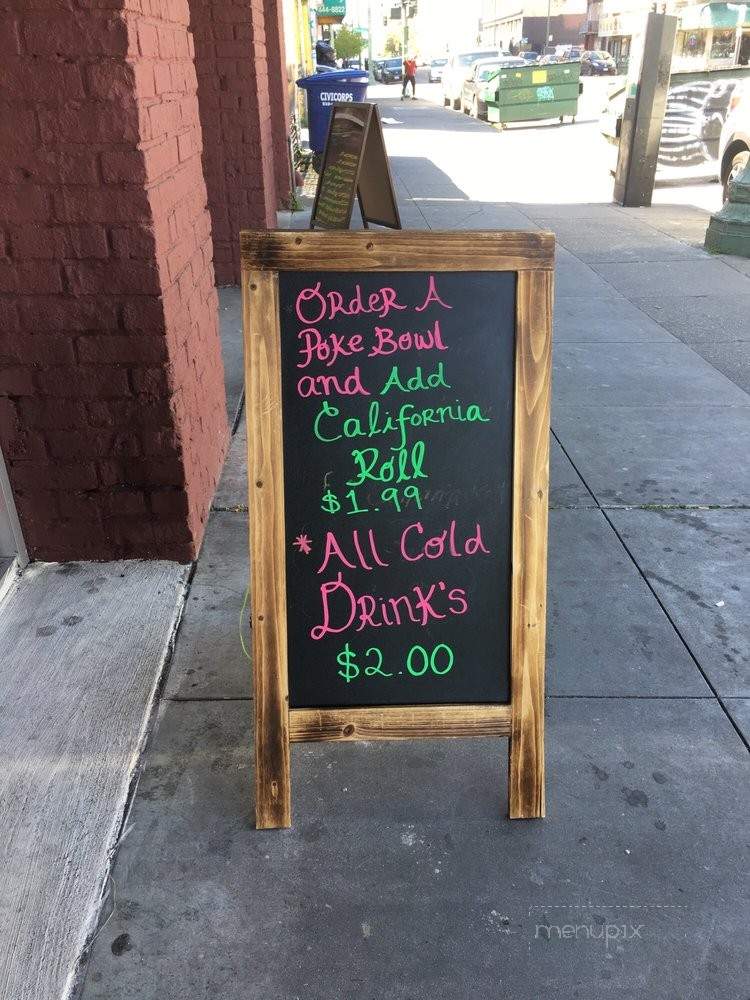 444-8822
CIVICORPS
Order A
Poke Bowl
and Add
California
Roll
$1.99
*All Cold
Drink's
$2.00
menupix